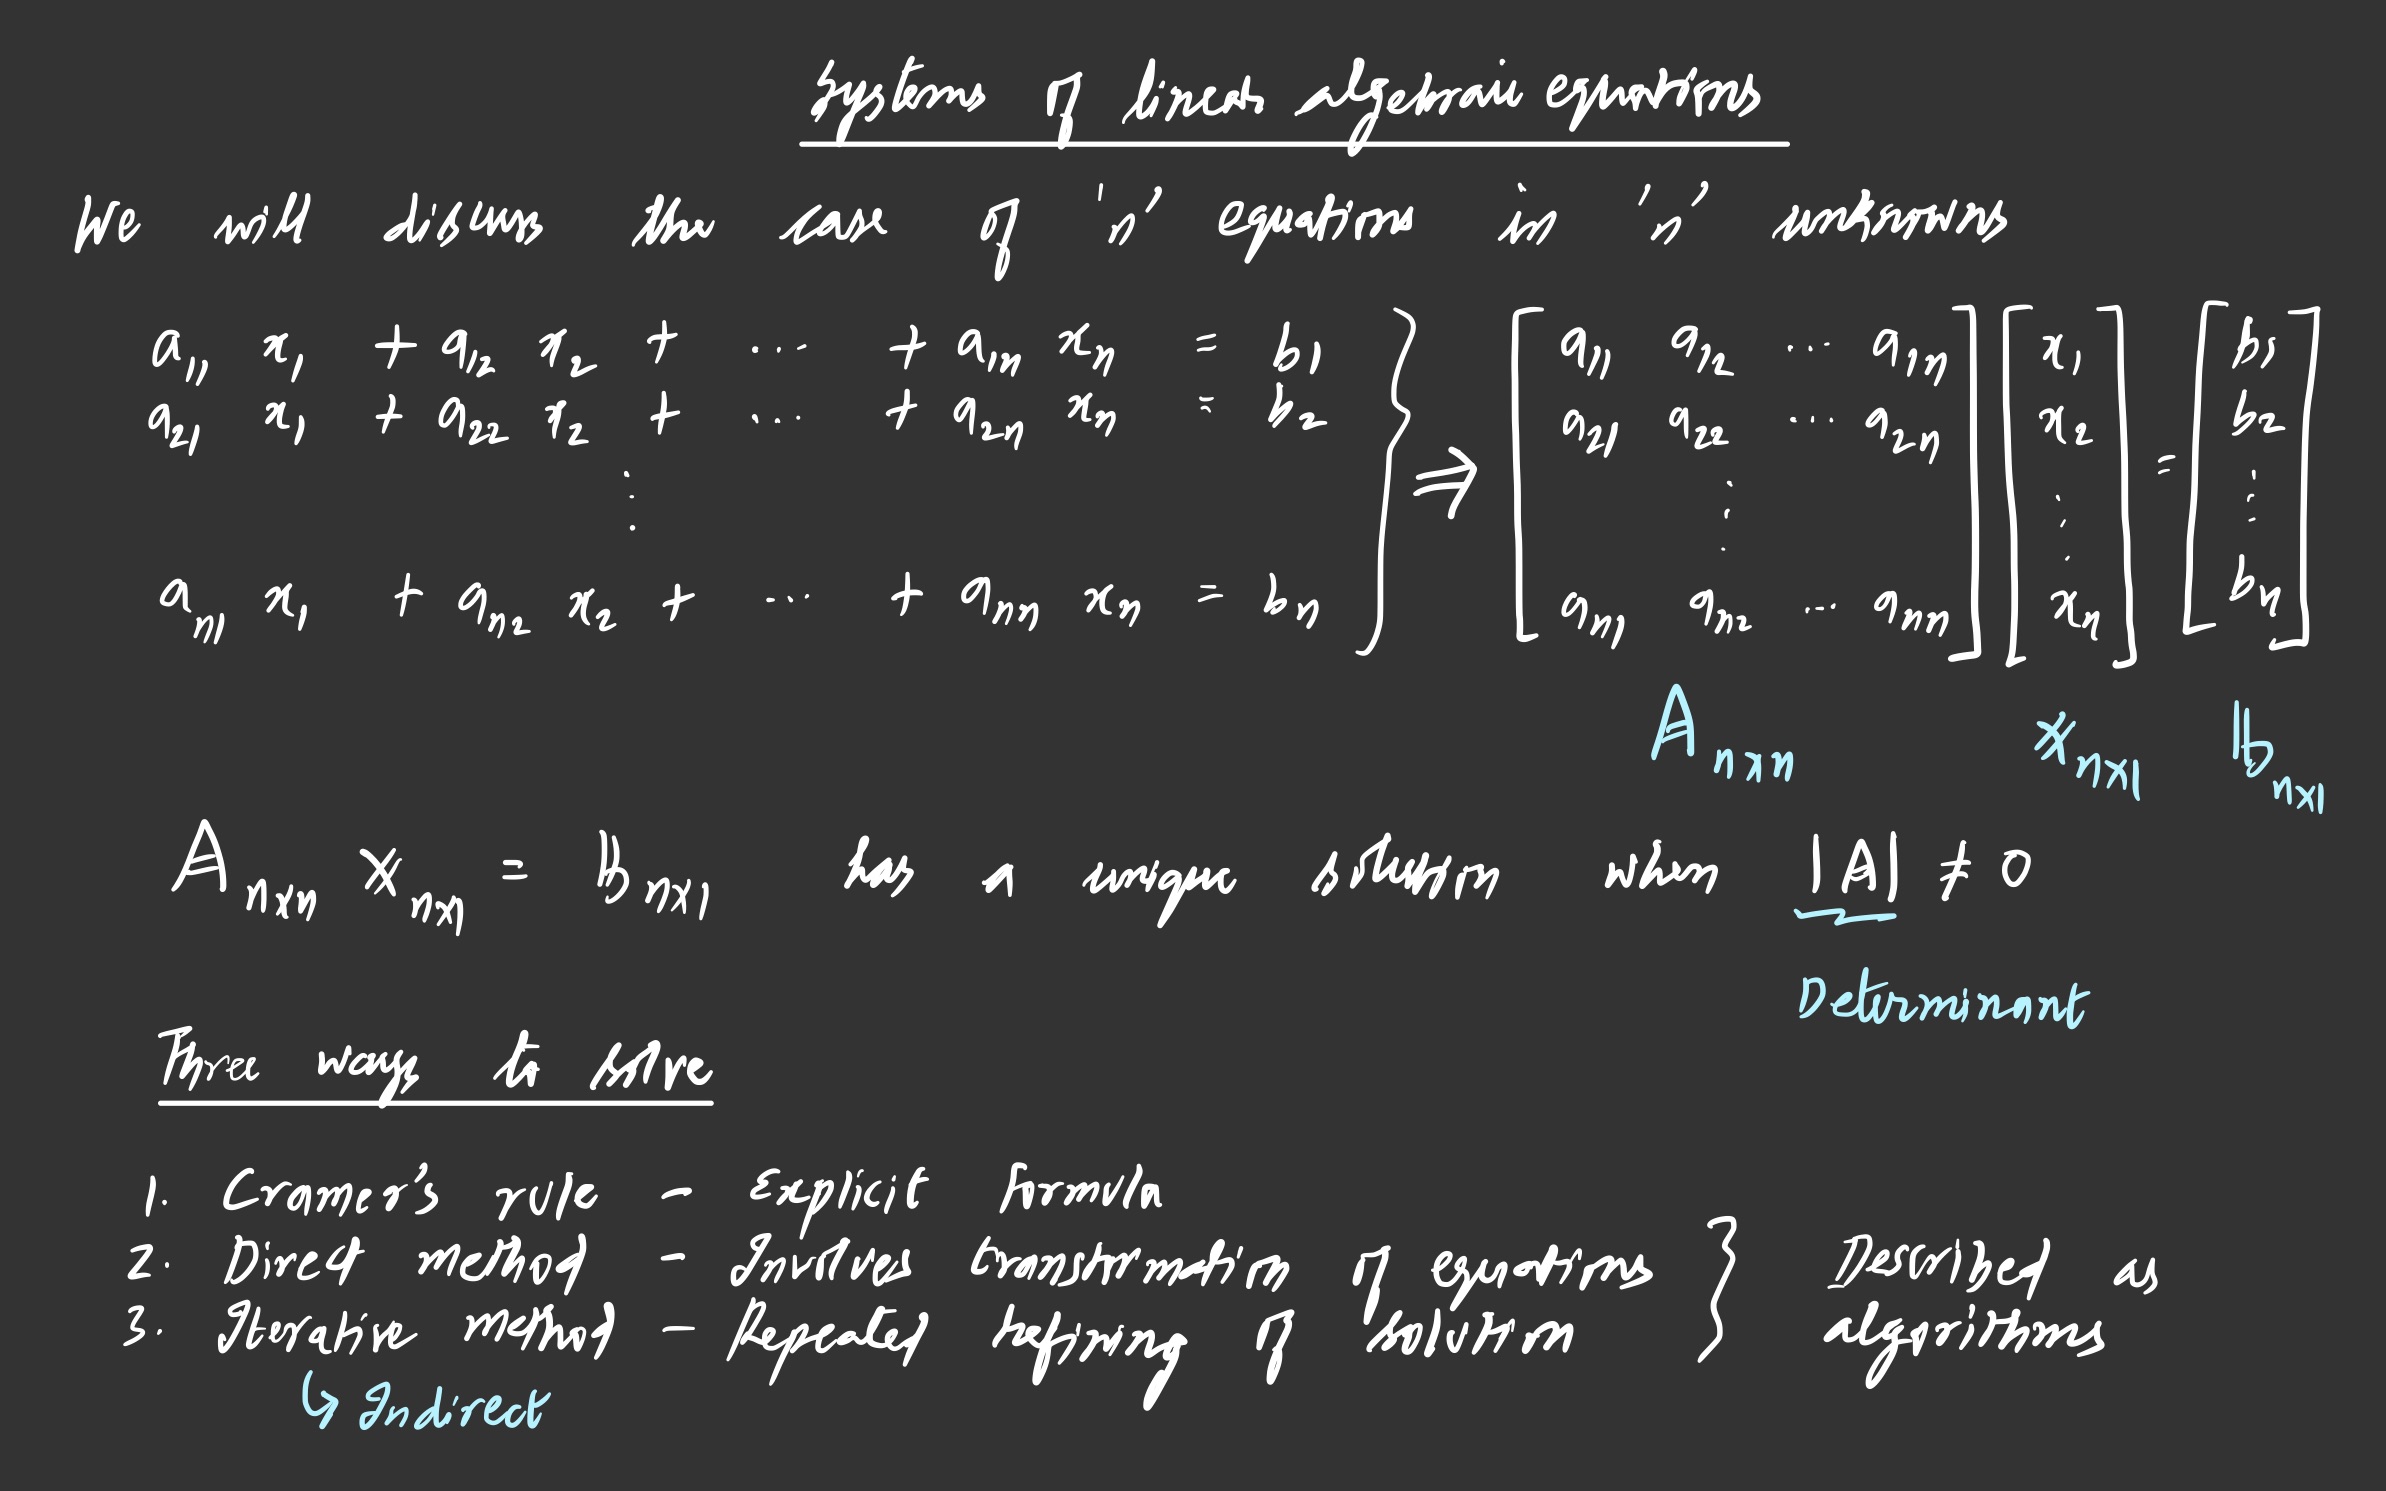 Systems of linear algebraic equations
We will discuss the case of 'n' equations in 'n' unknowns
a₁₁ x₁ + a₁₂ x₂ + ... + a₁ₙ xₙ = b₁
a₂₁ x₁ + a₂₂ x₂ + ... + a₂ₙ xₙ = b₂
⋮
aₙ₁ x₁ + aₙ₂ x₂ + ... + aₙₙ xₙ = bₙ
} ⇒
[ a₁₁ a₁₂ ... a₁ₙ ] [ x₁ ] = [ b₁ ]
[ a₂₁ a₂₂ ... a₂ₙ ] [ x₂ ] [ b₂ ]
⋮ ⋮ ⋮
[ aₙ₁ aₙ₂ ... aₙₙ ] [ xₙ ] [ bₙ ]
𝔸ₙₓₙ 𝕩ₙₓ₁ 𝕓ₙₓ₁
𝔸ₙₓₙ 𝕩ₙₓ₁ = 𝕓ₙₓ₁ has a unique solution when |𝔸| ≠ 0
Determinant
Three ways to solve
1. Cramer's rule - Explicit formula
2. Direct method - Involves transformation of equations
3. Iterative method - Repeated refining of solution
} Described as
algorithms
↳ Indirect